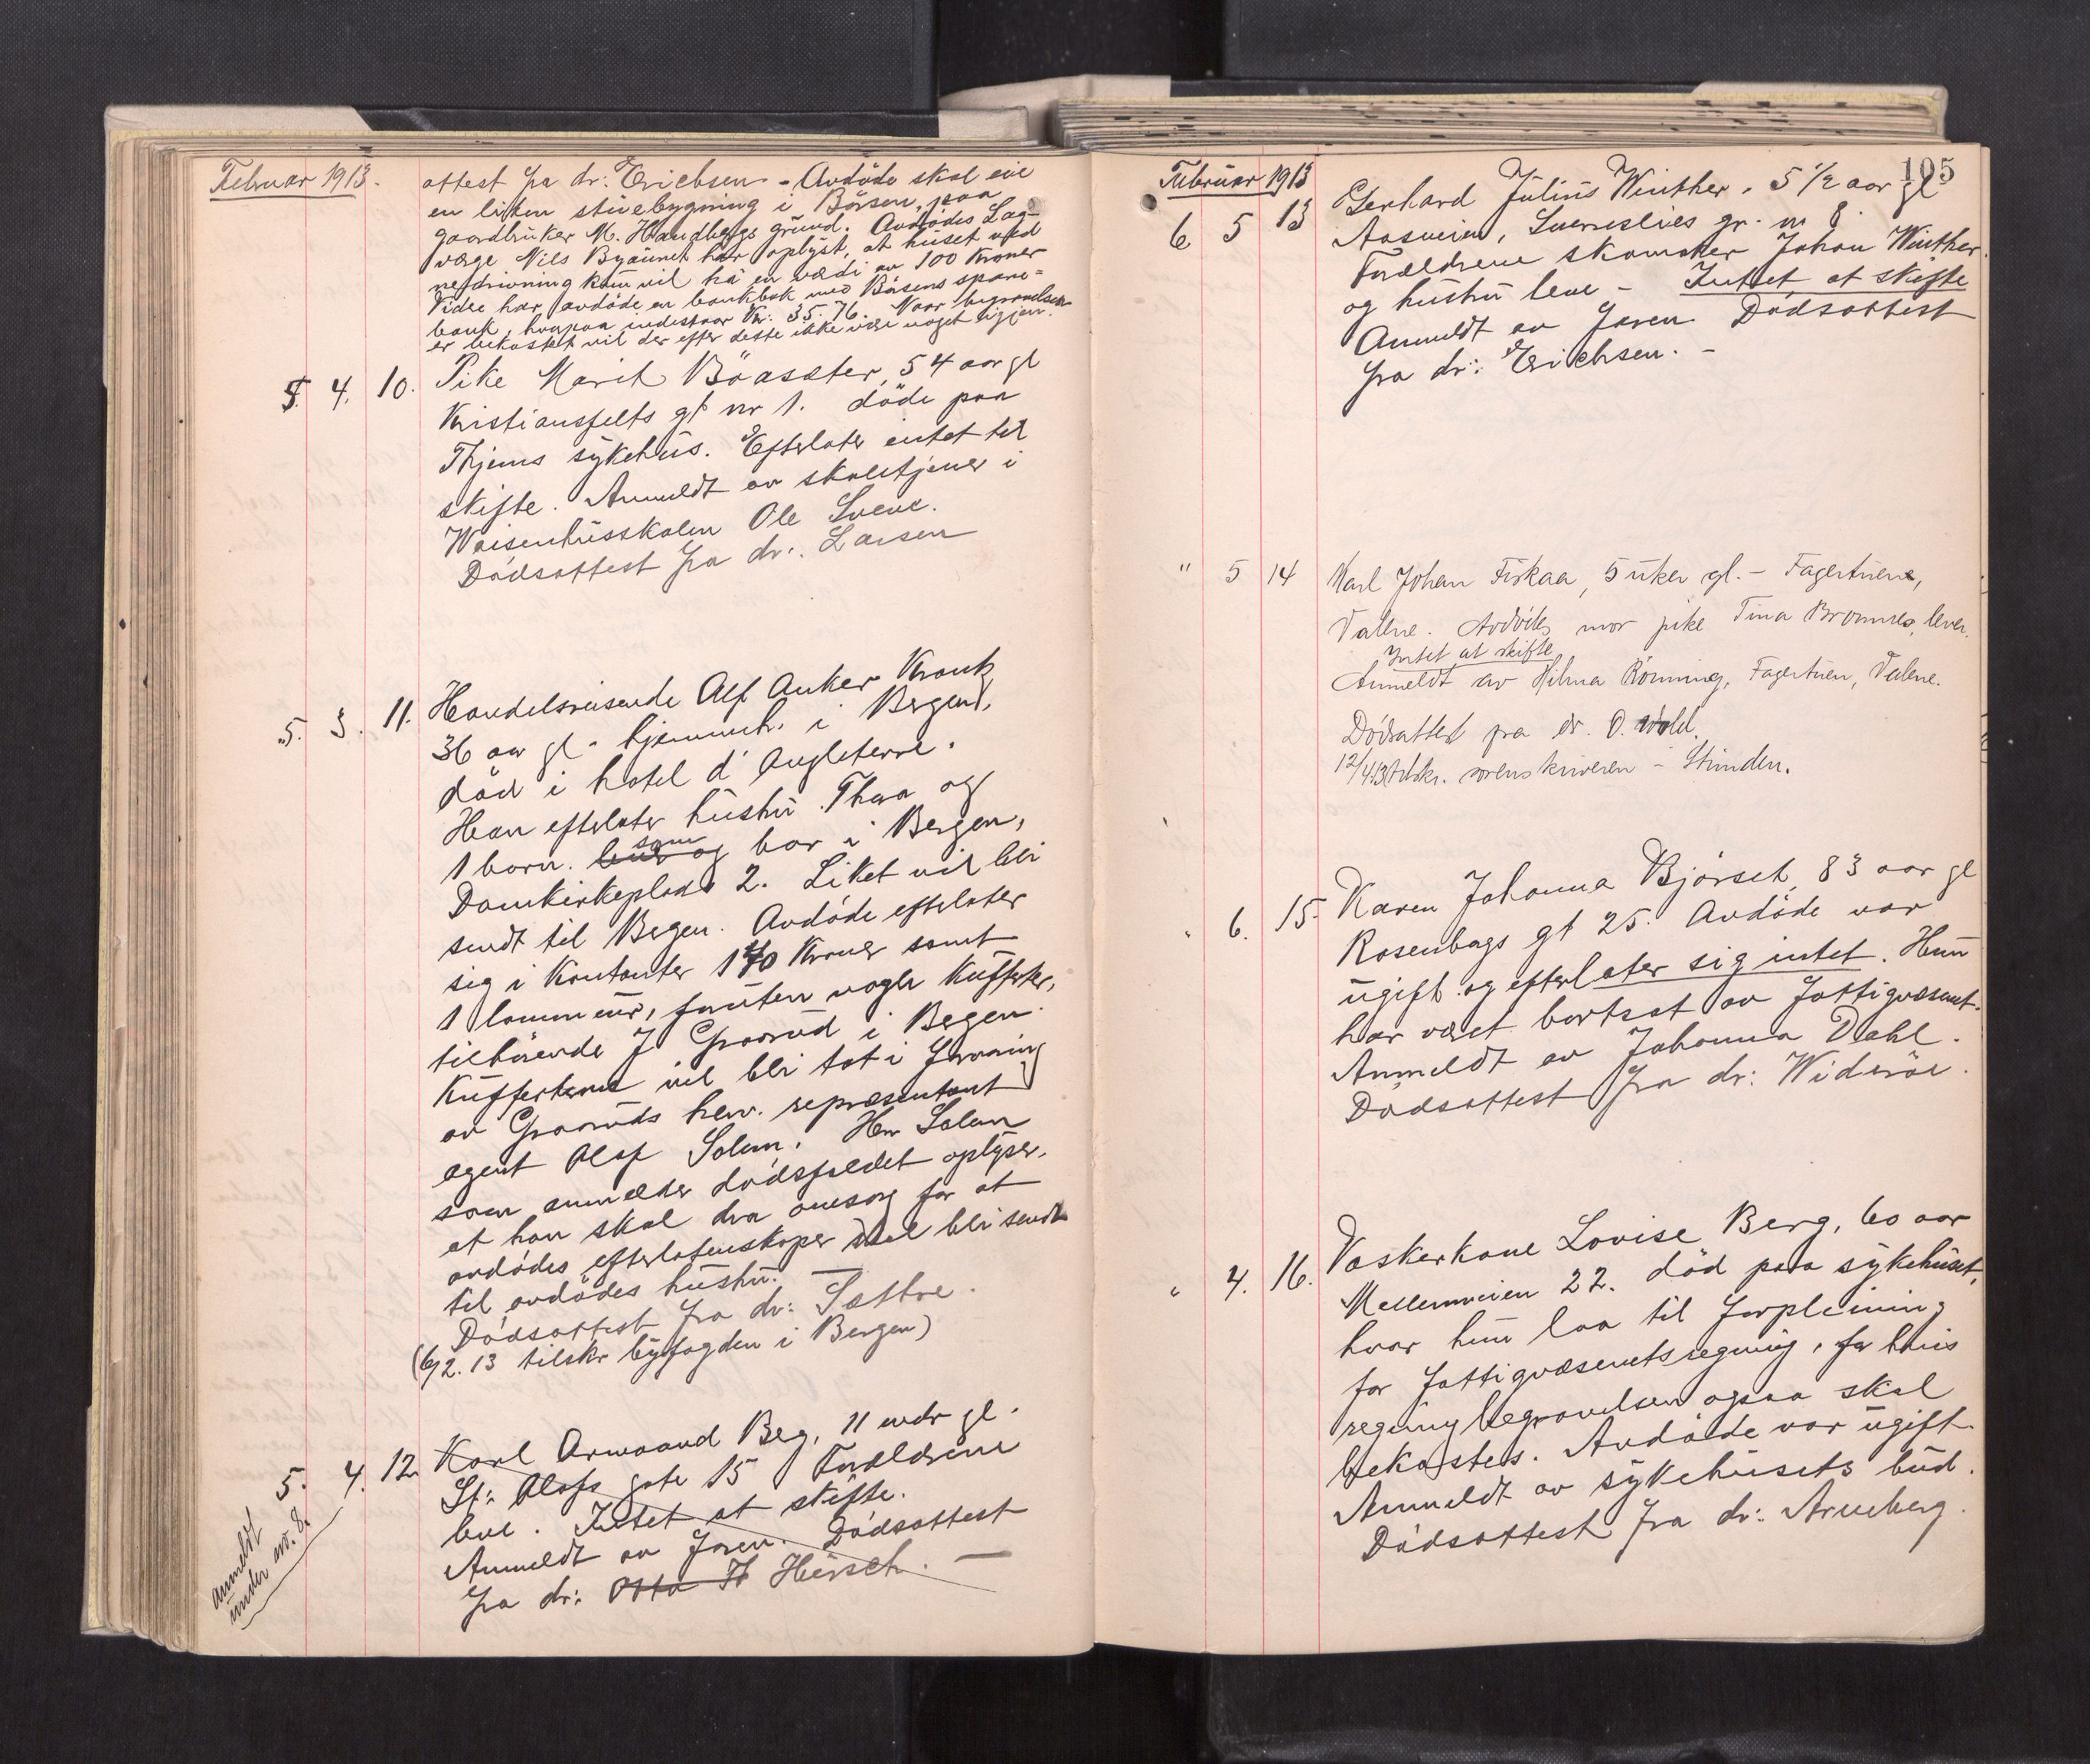 Februar 1913.
attest fra dr: Erichsen - Avdöde skal eie
en liten stuebygning i Börsen, paa
gaardbruker M. Handbergs grund. Avdödes Lag-
værge Nils Byaunet har oplyst, at huset ved
nedrivning kun vil ha en værdi av 100 Kroner
Videre har avdöde en bankbok med Börsens spare=
bank, hvorpaa indestaar Kr: 35.76. Naar begravelsen
er bekostet vil der efter dette ikke være noget igjen.
5. 4. 10. Pike Marit Böasæter, 54 aar gl
Kristiansfelts gt nr 1. döde paa
Thjems sykehus. Efterlater intet til
skifte. Anmeldt av skoletjener i
Waisenhusskolen Ole Sveve.
Dödsattest fra dr: Larsen
5. 3. 11. Handelsreisende Alf Anker Kronk
36 aar gl. hjemmeh. i Bergen,
död i hotel d'Angleterre.
Han efterlater hustru Thea og
1 barn. som bor i Bergen,
Domkirkeplads 2. Liket vil bli
sendt til Bergen. Avdöde efterlater
sig i Kontanter 170 Kroner samt
1 lommeur, foruten nogle Kufferter,
tilhörende J Graarud i Bergen.
Kufferterne vil bli tat i forvaring
av Graaruds herv. repræsentant
agent Olaf Solem. Herr Solem
som anmelder dödsfaldet oplyser,
at han skal dra omsorg for at
avdödes efterlatenskaper skal bli sendt
til avdödes hustru.
Dödsattest fra dr: Sættre.
(6/2.13 tilskr byfogden i Bergen)
5. 4. 12. Karl Armaand Berg, 11 mdr gl.
St: Olafs gate 15 Forældrene
leve. Intet at skifte.
Anmeldt av faren. Dödsattest
fra dr: Otto H Hirsch. —
anmeldt
under nr. 8.
105
Februar 1913
6 5 13 Gerhard Julius Winther. 5 1/2 aar gl
Aasveien, Sverreslies gr. nr 8.
Forældrene skomaker Johan Winther
og hustru leve - Intet at skifte
Anmeldt av faren Dödsattest
fra dr: Erichsen. -
" 5 14 Karl Johan Fiskaa, 5 uker gl. - Fagertuen,
Valene. Avdödes mor pike Tina Bromnes, lever.
Intet at skifte
Anmeldt av Hilma Rönning, Fagertuen, Valene.
Dödsattest fra dr. O. Wold.
12/4 13 tilskr. sorenskriveren - Strinden.
" 6. 15. Karen Johanna Bjørset, 83 aar gl
Rosenbags gt 25. Avdöde var
ugift og efterlater sig intet. Hun
har været bortsat av fattigvæsenet.
Anmeldt av Johanna Dahl.
Dödsattest fra dr: Wideröe.
" 4. 16. Vaskerkone Lovise Berg, 60 aar
Mellemveien 22. död paa sykehuset,
hvor hun laa til forpleining
for fattigvæsenets regning, for hvis
regning begravelsen ogsaa skal
bekostes. Avdöde var ugift.
Anmeldt av sykehusets bud.
Dödsattest fra dr: Arneberg.